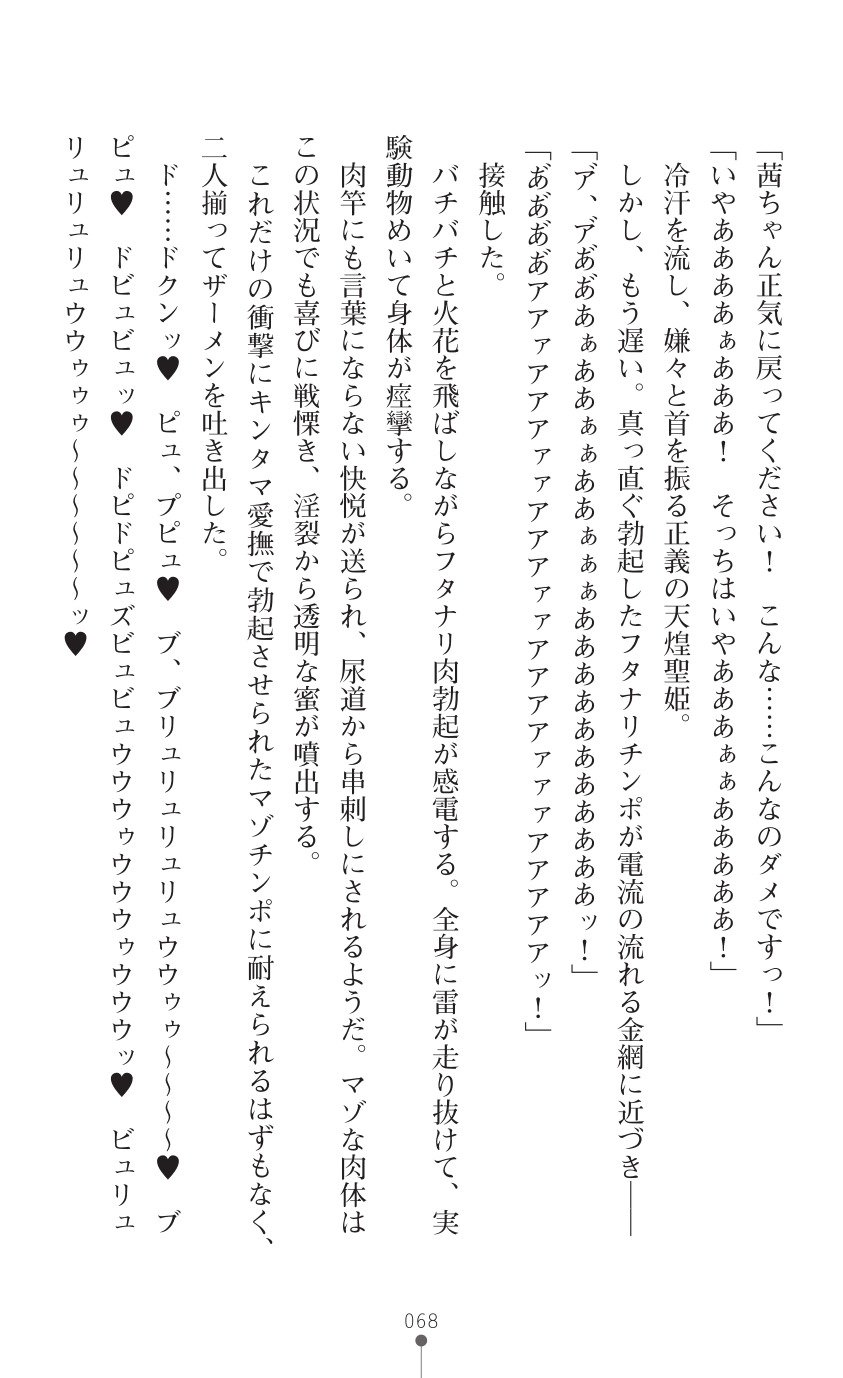 「茜ちゃん正気に戻ってください！　こんな……こんなのダメですっ！」
「いやああああぁあああ！　そっちはいやあああぁぁああああああ！」
　冷汗を流し、嫌々と首を振る正義の天煌聖姫。
　しかし、もう遅い。真っ直ぐ勃起したフタナリチンポが電流の流れる金網に近づき――
「ア゛、ア゛あ゛あ゛あぁああぁぁああぁぁぁああああああああああああッ！」
「あ゛あ゛あ゛あ゛アアァアアアアァァアアアァァアアアアアァァァアアアアアアッ！」
　接触した。
　バチバチと火花を飛ばしながらフタナリ肉勃起が感電する。全身に雷が走り抜けて、実
験動物めいて身体が痙攣する。
　肉竿にも言葉にならない快悦が送られ、尿道から串刺しにされるようだ。マゾな肉体は
この状況でも喜びに戦慄き、淫裂から透明な蜜が噴出する。
　これだけの衝撃にキンタマ愛撫で勃起させられたマゾチンポに耐えられるはずもなく、
二人揃ってザーメンを吐き出した。
　ド……ドクンッ♥　ピュ、プピュ♥　ブ、ブリュリュリュリュウウゥゥ～～～～♥　ブ
ピュ♥　ドビュビュッ♥　ドピドピュズビュビュウウウゥウウウゥウウウッ♥　ビュリュ
リュリュリュウウゥゥゥ～～～～～～ッ♥
068